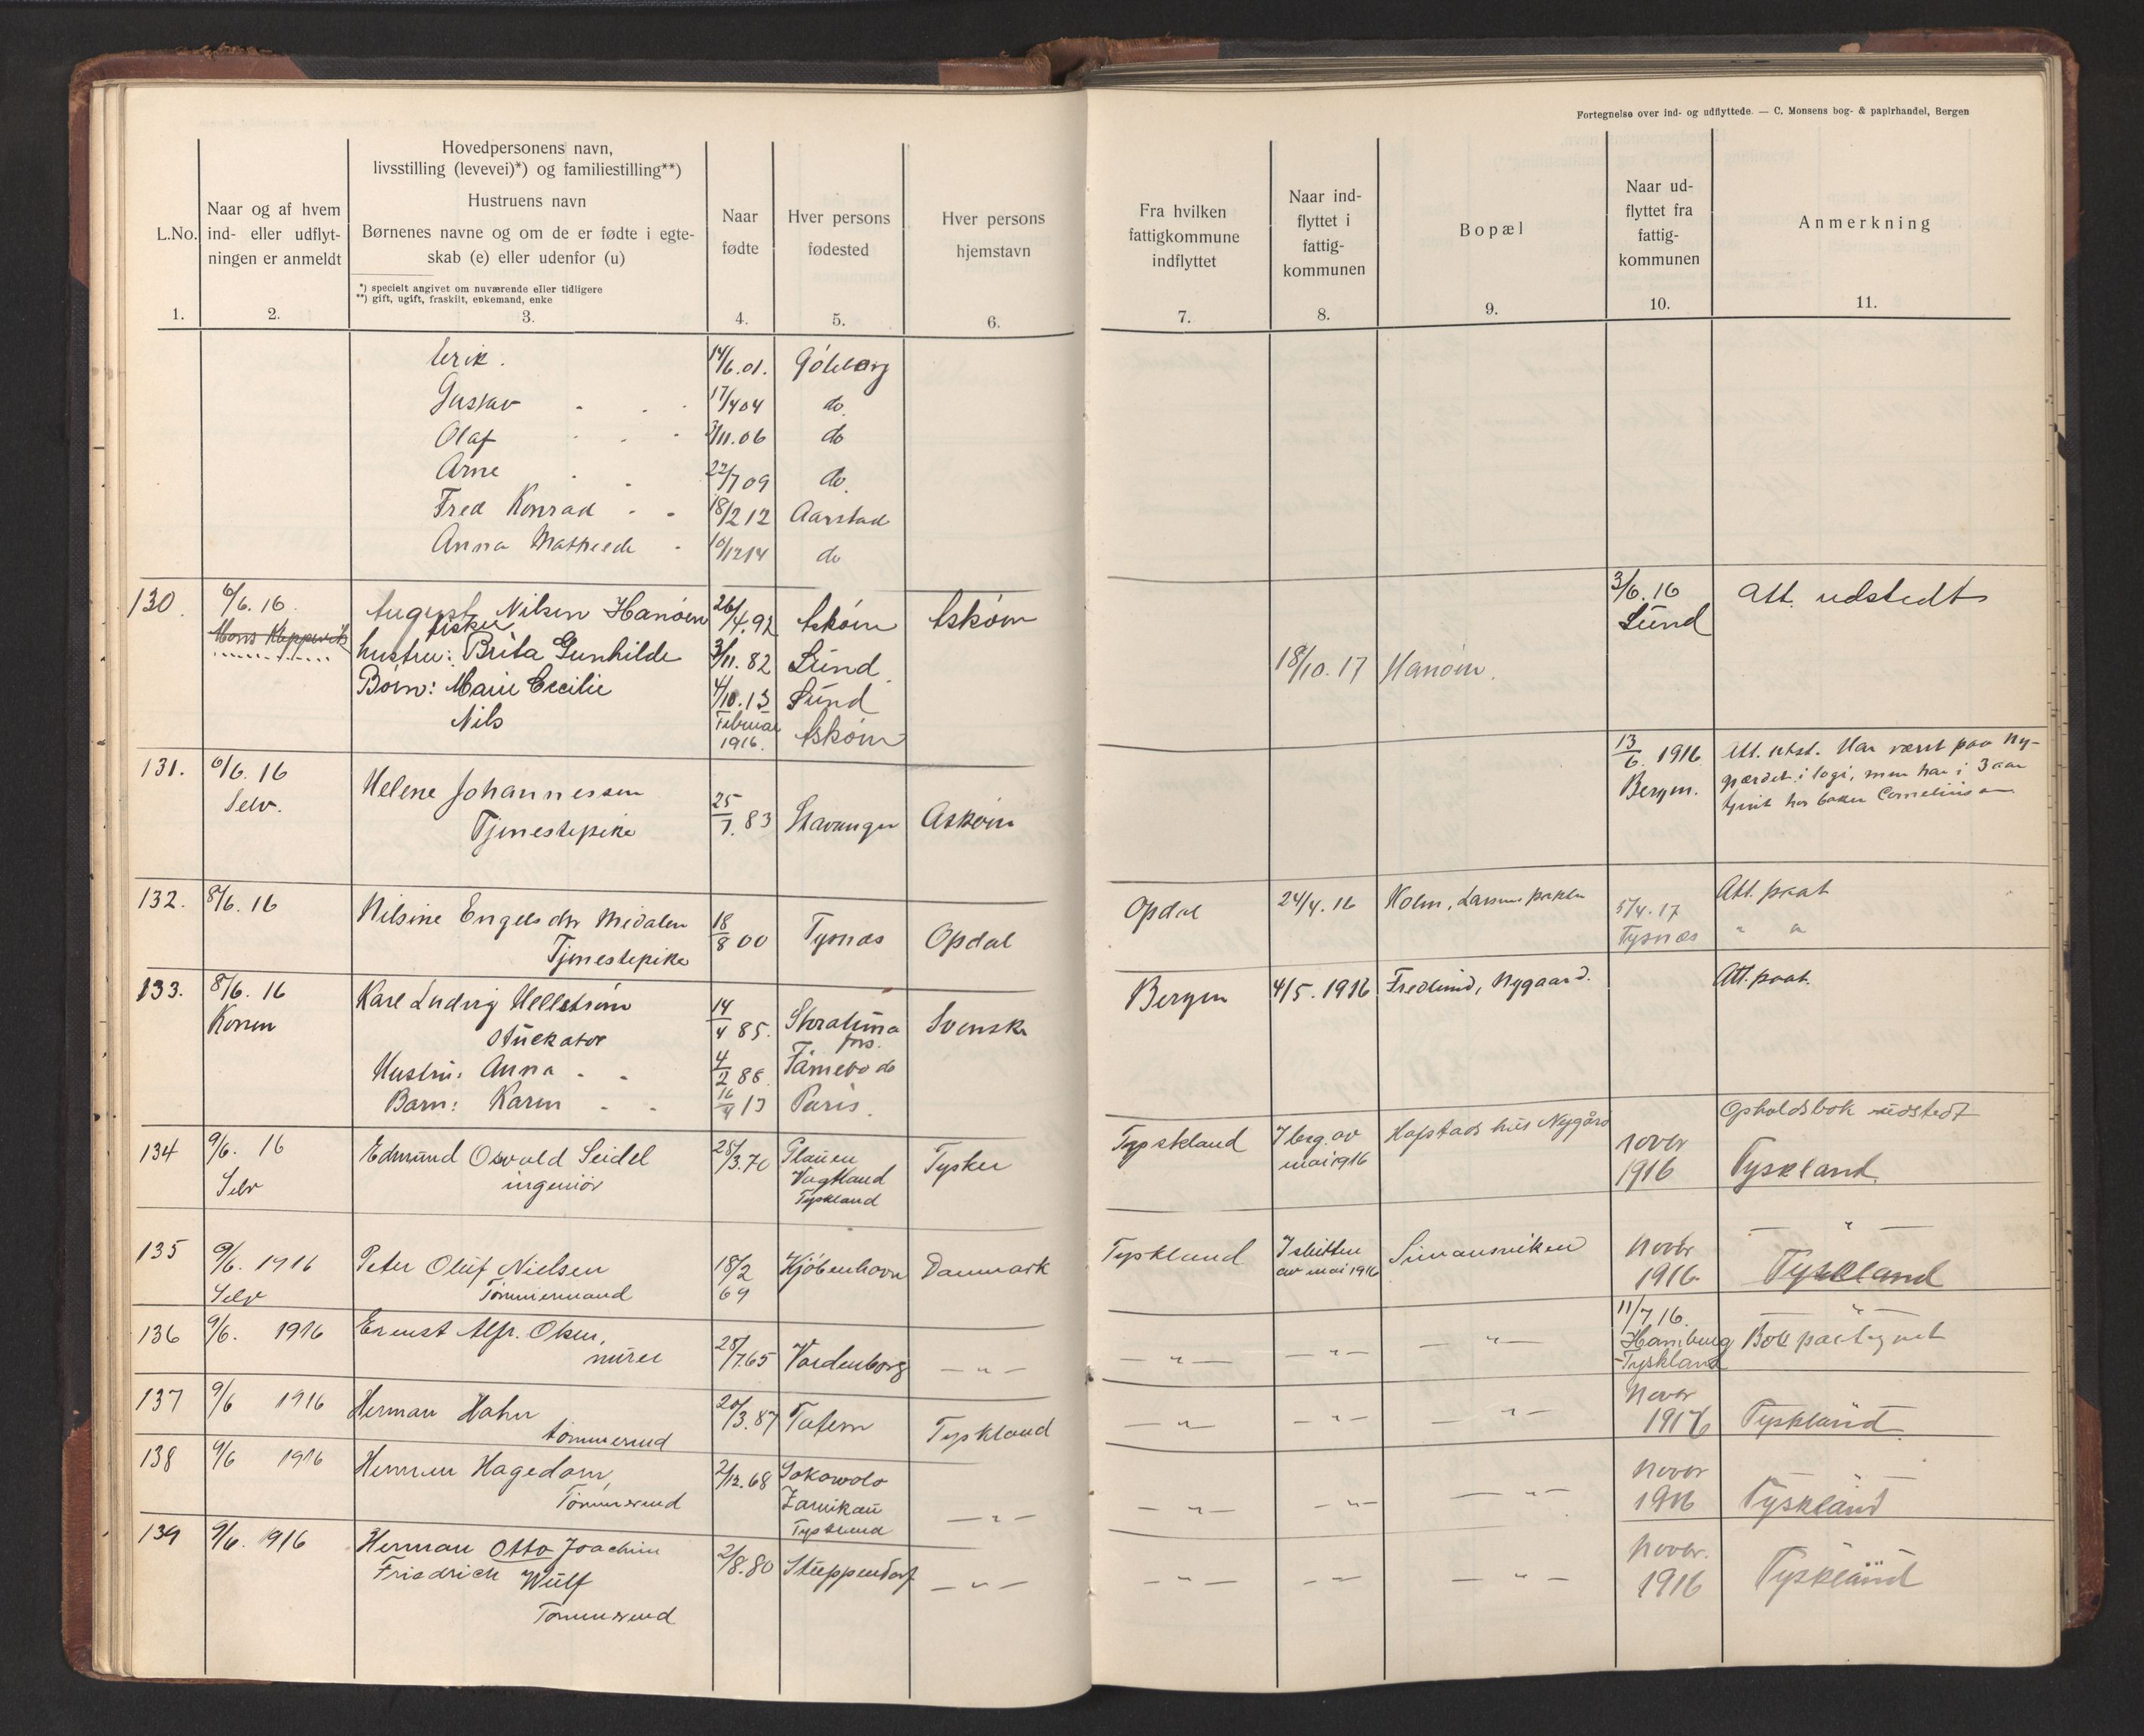 Fortegnelse over ind- og udflyttede. — C. Monsens bog- & papirhandel, Bergen
L.No.
1.
Naar og af hvem
ind- eller udflyt-
ningen er anmeldt
2.
Hovedpersonens navn,
livsstilling (levevei)*) og familiestilling**)
Hustruens navn
Børnenes navne og om de er fødte i egte-
skab (e) eller udenfor (u)
*) specielt angivet om nuværende eller tidligere
**) gift, ugift, fraskilt, enkemand, enke
3.
Naar
fødte
4.
Hver persons
fødested
5.
Hver persons
hjemstavn
6.
Fra hvilken
fattigkommune
indflyttet
7.
Naar ind-
flyttet i
fattig-
kommunen
8.
Bopæl
9.
Naar ud-
flyttet fra
fattig-
kommunen
10.
Anmerkning
11.
Erik . 14/6.01. Göteborg
Gustav 17/4 04 do.
Olaf /11.06 do
Arne 22/7 09 do.
Fred Konrad 18/2 12 Aarstad
Anna 10/12 14 do
130. 6/6. 16. August Nilsen Hanøen 26/4.92 Askøen Askøen 3/6.16 Att. udstedt
fisker Sund
hustru: Brita Gunhilde 3/11. 82 Sund 18/10. 17 Hanøen.
Børn: Marie Cecilie 4/10.13 Sund
Nils Februar 1916. Askøen
131. 6/6. 16 Helene Johannessen 25/7. 83 Stavanger Askøen 13/6. 1916 Att. utst. Har været paa Ny-
Selv. Tjenestepike Bergen. gærdet i logi, men har i 3 aar
tjent hos baker Corneliussen
132. 8/6. 16 Nilsine Engelsdtr Midalen 18/8 00 Tysnæs Opdal Opdal 24/4. 16 Holm, 5/4. 17 Att. paat
Tjenestepike Tysnæs " "
133. 8/6. 16 Karl Ludvig Hellstrøm 14/4 85. Svensk Bergen 4/5. 1916 Fredlund, Nygaard. Att. paat.
Konen stuckatør
Hustru: Anna 4/2
Barn: Karen 16/9 13 Paris.
134 9/6. 16 Edmund Osvald Seidel 28/3.70 Plauen Tysker Tyskland I beg. av mai 1916 Hafstads hus Nygård Opholdsbok udstedt
Selv ingeniør Vogtland Tyskland novbr 1916 Tyskland
135 9/6. 1916 Peter Oluf Nielsen 18/2 69 Kjøbenhavn Danmark Tyskland I slutten av mai 1916 Simonsviken Novbr 1916. — " —
Selv Tømmermand Tyskland
136 9/6. 1916 Ernest Alfr. Olsen, 28/7.65 Vordenborg — " — — " — — " — — " — 11/7.16. "
murer Hamburg Bok paategnet
Tyskland
137 9/6 1916 Herman Hahn 20/3.87 Tyskland — " — — " — — " — Novbr 1916 Tyskland
tømmermd
138 9/6 1916 Herman Hagedorn, 2/12.68 — " — — " — — " — — " — Novbr 1916 Tyskland
Tømmermd Tyskland
139 9/6. 1916 Herman Otto Joachim 2/8.80 — " — — " — — " — — " — Novbr. 1916 Tyskland
Friedrich Wulf
Tømmermd